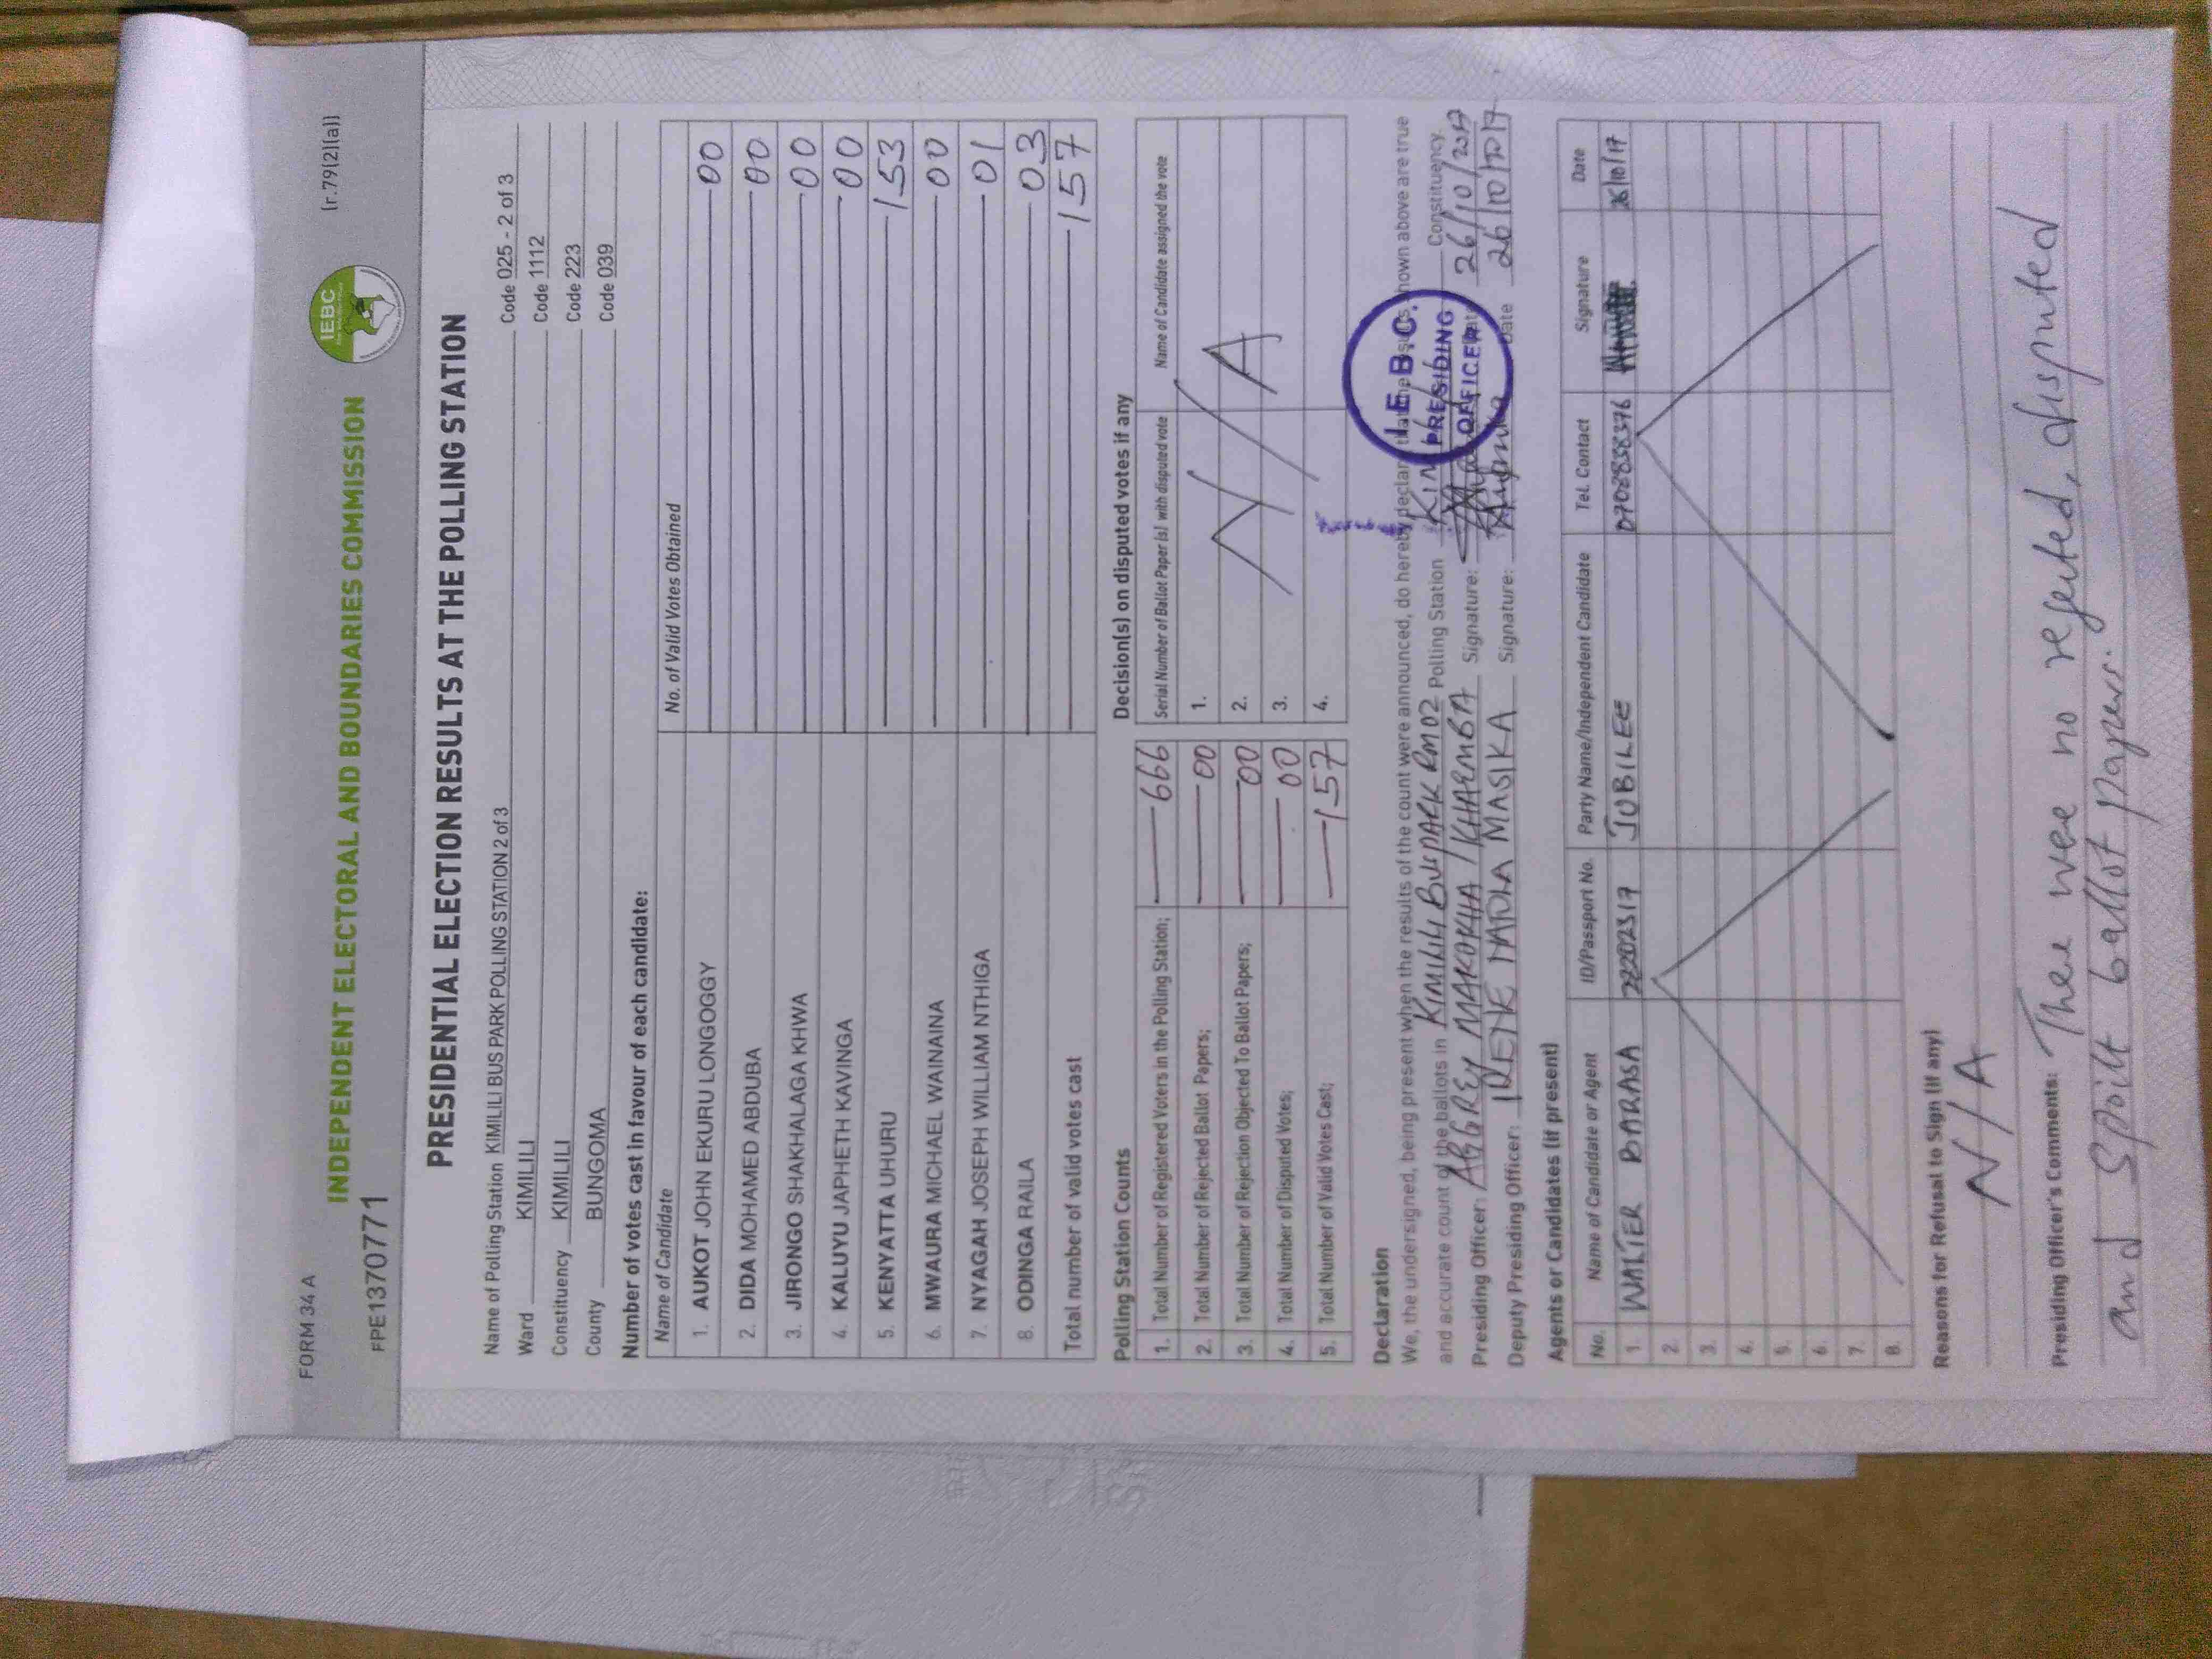 FORM 34 A
[r.79(2)(a)]
IEBC
INDEPENDENT ELECTORAL AND BOUNDARIES COMMISSION
FPE1370771
PRESIDENTIAL ELECTION RESULTS AT THE POLLING STATION
Name of Polling Station KIMILILI BUS PARK POLLING STATION 2 of 3 Code 025 - 2 of 3
Ward KIMILILI Code 1112
Constituency KIMILILI Code 223
County BUNGOMA Code 039
Number of votes cast in favour of each candidate:
Name of Candidate No. of Valid Votes Obtained
1. AUKOT JOHN EKURU LONGOGGY 00
2. DIDA MOHAMED ABDUBA 00
3. JIRONGO SHAKHALAGA KHWA 00
4. KALUYU JAPHETH KAVINGA 00
5. KENYATTA UHURU 153
6. MWAURA MICHAEL WAINAINA 00
7. NYAGAH JOSEPH WILLIAM NTHIGA 01
8. ODINGA RAILA 03
Total number of valid votes cast 157
Polling Station Counts
1. Total Number of Registered Voters in the Polling Station; 666
2. Total Number of Rejected Ballot Papers; 00
3. Total Number of Rejection Objected To Ballot Papers; 00
4. Total Number of Disputed Votes; 00
5. Total Number of Valid Votes Cast; 157
Decision(s) on disputed votes if any
Serial Number of Ballot Paper (s) with disputed vote Name of Candidate assigned the vote
1.
2.
3.
4.
N/A
Declaration
We, the undersigned, being present when the results of the count were announced, do hereby declare that the results shown above are true
and accurate count of the ballots in KIMILILI BUSPARK RM02 Polling Station Constituency.
Presiding Officer: AGGREY MAKOKHA KHAEMBA Signature: 26/10/2017
Deputy Presiding Officer: MASIKA Signature: Date 26/10/2017
I.E.B.C.
PRESIDING
OFFICER
Agents or Candidates (if present)
No. Name of Candidate or Agent ID/Passport No. Party Name/Independent Candidate Tel. Contact Signature Date
1. WALTER BARASA 22202317 JUBILEE 0708858376 26/10/17
2.
3.
4.
5.
6.
7.
8.
Reasons for Refusal to Sign (if any)
N/A
Presiding Officer's Comments: There were no rejected, disputed
and spoilt ballot papers.